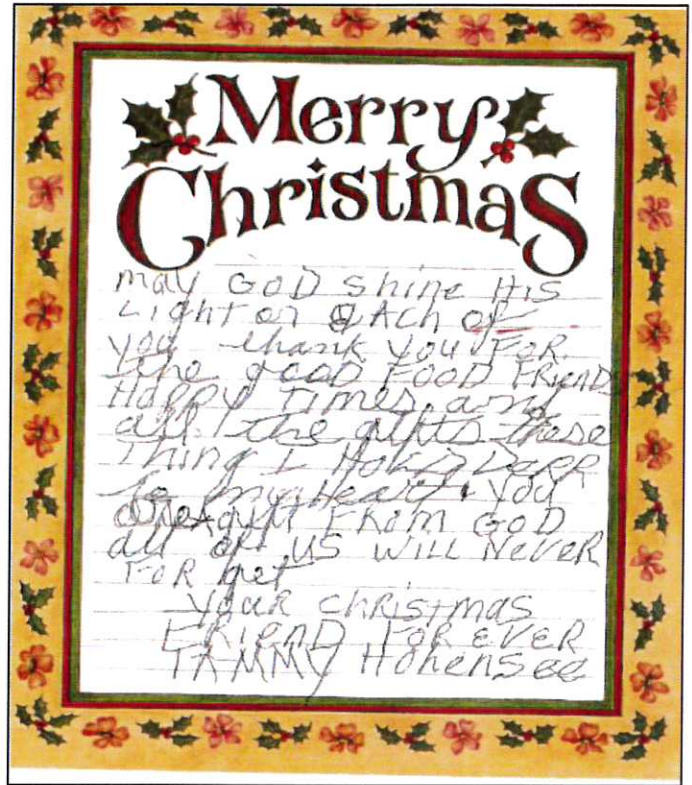 Merry
Christmas
may GOD shine His
Light on EACH of
you thank you FOR
the good FOOD FRIEND
HaPPY Times and
all the gifts these
Thing I HoLD DeRR
to my Heart. you
are A gift FRom GOD
all of US WILL NeVeR
FoR get
your CHRiSTmas
FRIEND FOREVER
TAMMY HohenSee